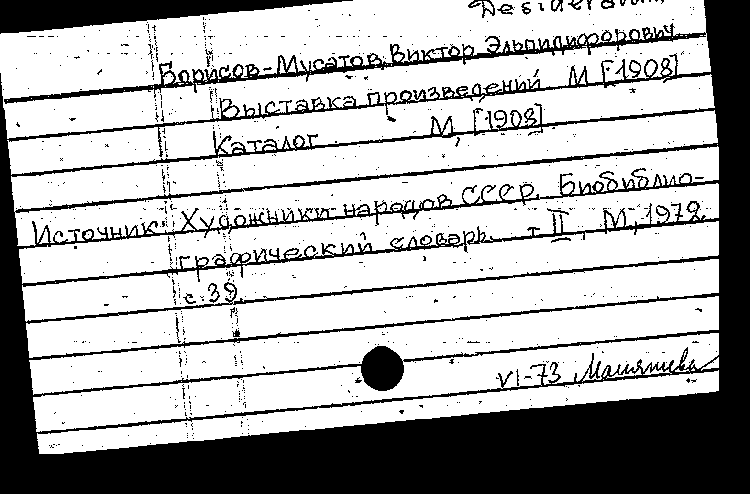 Desiderata
Борисов-Мусатов, Виктор Эльпидифорович
Выставка произведений М [1908]
Каталог М, [1908]
Источник: Художники народов СССР. Биобиблио-
графический словарь. т II, М, 1972.
с. 39.
VI-73